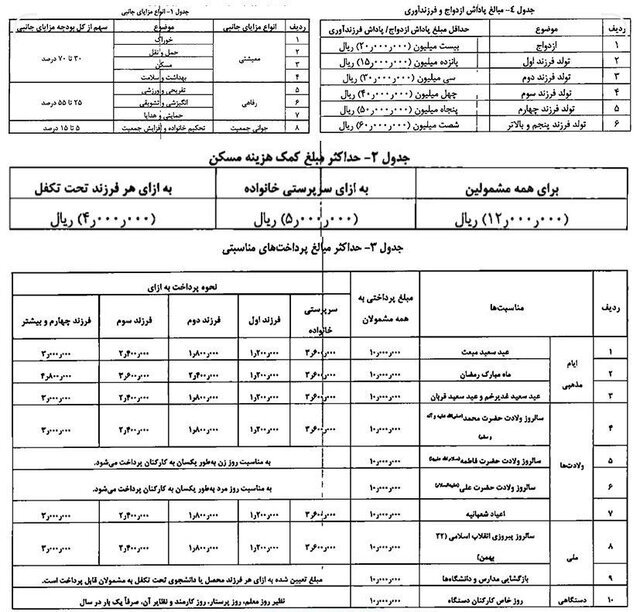 جدول ۱- انواع مزایای جانبی
ردیف موضوع انواع مزایای جانبی سهم از کل بودجه مزایای جانبی
۱ خوراک
۲ حمل و نقل
۳ مسکن
۴ بهداشت و سلامت
معیشتی ۳۰ تا ۷۰ درصد
۵ تفریحی و ورزشی
۶ انگیزشی و تشویقی
۷ حمایتی و هدایا
رفاهی ۲۵ تا ۵۵ درصد
۸ تحکیم خانواده و افزایش جمعیت جوانی جمعیت ۵ تا ۱۵ درصد
جدول ۴- مبالغ پاداش ازدواج و فرزندآوری
ردیف موضوع حداقل مبلغ پاداش ازدواج/ پاداش فرزندآوری
۱ ازدواج بیست میلیون (۲۰٫۰۰۰٫۰۰۰) ریال
۲ تولد فرزند اول پانزده میلیون (۱۵٫۰۰۰٫۰۰۰) ریال
۳ تولد فرزند دوم سی میلیون (۳۰٫۰۰۰٫۰۰۰) ریال
۴ تولد فرزند سوم چهل میلیون (۴۰٫۰۰۰٫۰۰۰) ریال
۵ تولد فرزند چهارم پنجاه میلیون (۵۰٫۰۰۰٫۰۰۰) ریال
۶ تولد فرزند پنجم و بالاتر شصت میلیون (۶۰٫۰۰۰٫۰۰۰) ریال
جدول ۲- حداکثر مبلغ کمک هزینه مسکن
برای همه مشمولین به ازای سرپرستی خانواده به ازای هر فرزند تحت تکفل
(۱۲٫۰۰۰٫۰۰۰) ریال (۵٫۰۰۰٫۰۰۰) ریال (۴٫۰۰۰٫۰۰۰) ریال
جدول ۳- حداکثر مبالغ پرداخت‌های مناسبتی
ردیف مناسبت‌ها مبلغ پرداختی به همه مشمولان نحوه پرداخت به ازای
سرپرستی خانواده فرزند اول فرزند دوم فرزند سوم فرزند چهارم و بیشتر
ایام مذهبی
۱ عید سعید مبعث ۱۰٫۰۰۰٫۰۰۰ ۳٫۶۰۰٫۰۰۰ ۱٫۲۰۰٫۰۰۰ ۱٫۸۰۰٫۰۰۰ ۲٫۴۰۰٫۰۰۰ ۳٫۰۰۰٫۰۰۰
۲ ماه مبارک رمضان ۱۰٫۰۰۰٫۰۰۰ ۳٫۶۰۰٫۰۰۰ ۱٫۲۰۰٫۰۰۰ ۲٫۴۰۰٫۰۰۰ ۳٫۶۰۰٫۰۰۰ ۴٫۸۰۰٫۰۰۰
۳ عید سعید غدیرخم و عید سعید قربان ۱۰٫۰۰۰٫۰۰۰ ۳٫۶۰۰٫۰۰۰ ۱٫۲۰۰٫۰۰۰ ۱٫۸۰۰٫۰۰۰ ۲٫۴۰۰٫۰۰۰ ۳٫۰۰۰٫۰۰۰
ولادت‌ها
۴ سالروز ولادت حضرت محمد (صلی الله علیه و آله و سلم) ۱۰٫۰۰۰٫۰۰۰ ۳٫۶۰۰٫۰۰۰ ۱٫۲۰۰٫۰۰۰ ۱٫۸۰۰٫۰۰۰ ۲٫۴۰۰٫۰۰۰ ۳٫۰۰۰٫۰۰۰
۵ سالروز ولادت حضرت فاطمه ۱۰٫۰۰۰٫۰۰۰ به مناسبت روز زن به‌طور یکسان به کارکنان پرداخت می‌شود.
۶ سالروز ولادت حضرت علی ۱۰٫۰۰۰٫۰۰۰ به مناسبت روز مرد به‌طور یکسان به کارکنان پرداخت می‌شود.
۷ اعیاد شعبانیه ۱۰٫۰۰۰٫۰۰۰ ۳٫۶۰۰٫۰۰۰ ۱٫۲۰۰٫۰۰۰ ۱٫۸۰۰٫۰۰۰ ۲٫۴۰۰٫۰۰۰ ۳٫۰۰۰٫۰۰۰
ملی
۸ سالروز پیروزی انقلاب اسلامی (۲۲ بهمن) ۱۰٫۰۰۰٫۰۰۰ ۳٫۶۰۰٫۰۰۰ ۱٫۲۰۰٫۰۰۰ ۱٫۸۰۰٫۰۰۰ ۲٫۴۰۰٫۰۰۰ ۳٫۰۰۰٫۰۰۰
۹ بازگشایی مدارس و دانشگاه‌ها ۱۰٫۰۰۰٫۰۰۰ مبلغ تعیین شده به ازای هر فرزند محصل یا دانشجوی تحت تکفل به مشمولان قابل پرداخت است.
دستگاهی
۱۰ روز خاص کارکنان دستگاه ۱۰٫۰۰۰٫۰۰۰ نظیر روز معلم، روز پرستار، روز کارمند و نظایر آن، صرفاً یک بار در سال